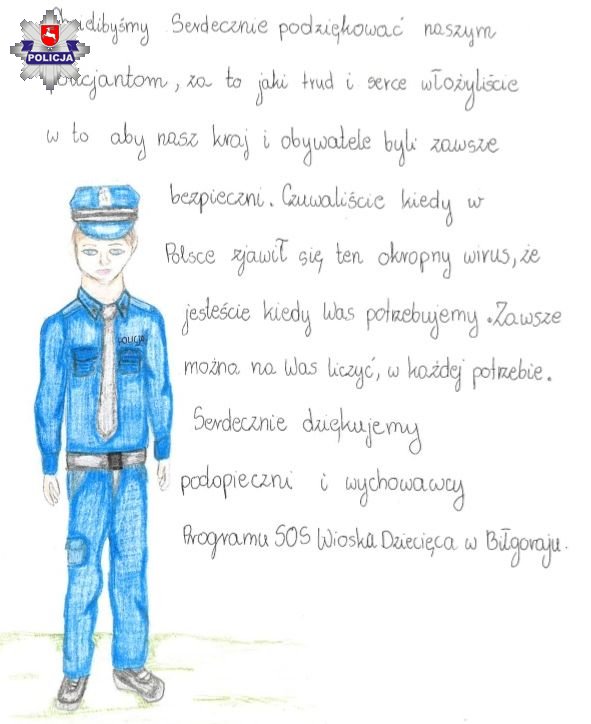 Chcielibyśmy Serdecznie podziękować naszym
policjantom, za to jaki trud i serce włożyliście
w to aby nasz kraj i obywatele byli zawsze
bezpieczni. Czuwaliście kiedy w
Polsce zjawił się ten okropny wirus, że
jesteście kiedy Was potrzebujemy. Zawsze
można na Was liczyć, w każdej potrzebie.
Serdecznie dziękujemy
podopieczni i wychowawcy
Programu SOS Wioska Dziecięca w Biłgoraju.
POLICJA
POLICJA